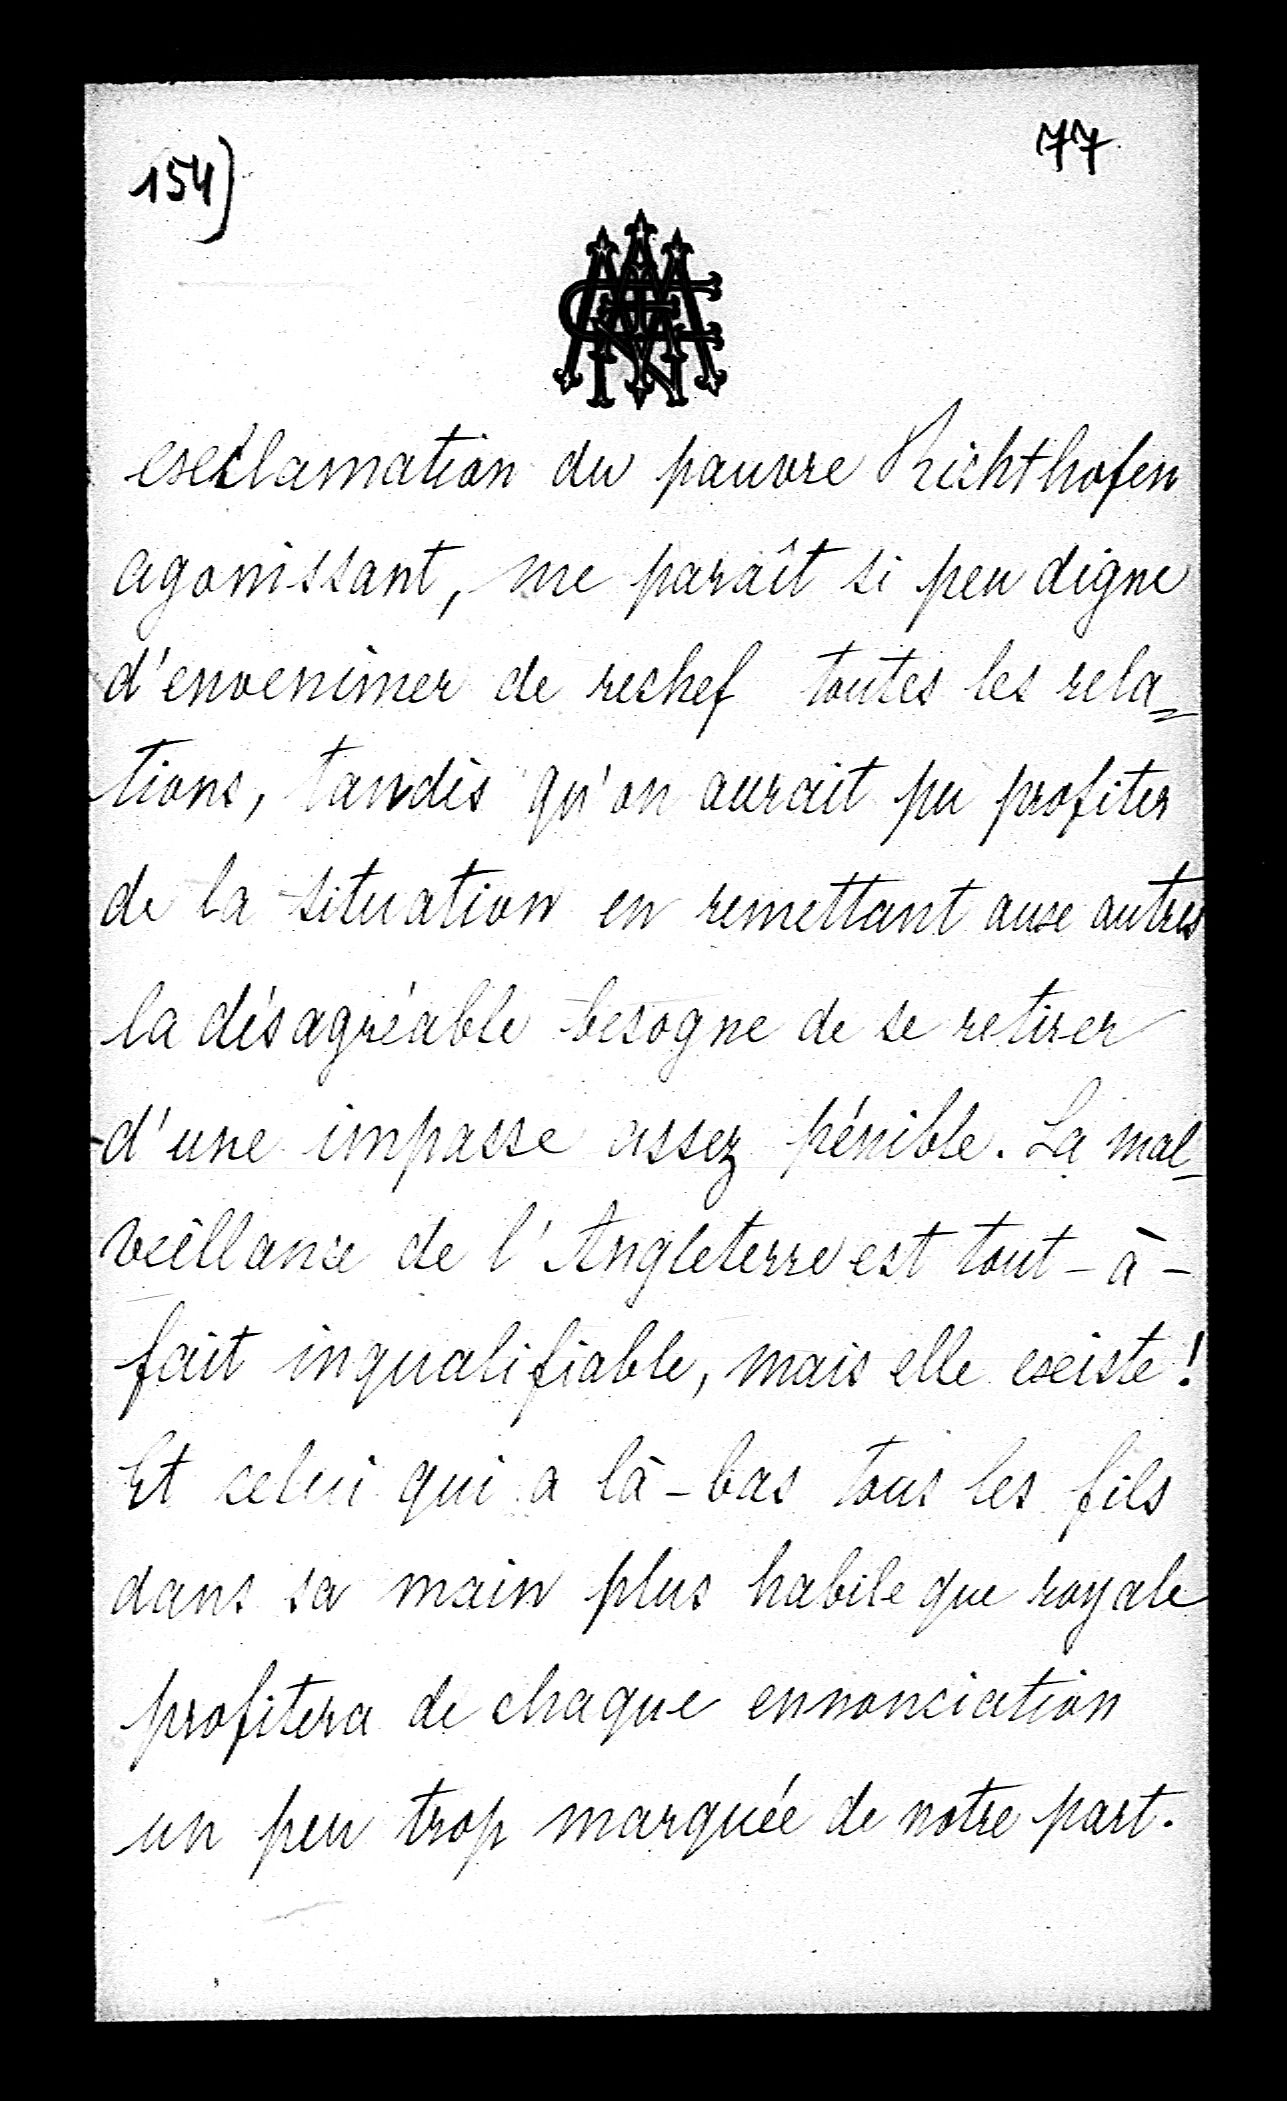 154)
77
exclamation du pauvre Richthofen
agonissant, me paraît si peu digne
d'envenimer de rechef toutes les rela=
tions, tandis qu'on aurait pu profiter
de la situation en remettant aux autres
la désagréable besogne de se retirer
d'une impasse assez pénible. La mal-
veillance de l'Angleterre est tout-à-
fait inqualifiable, mais elle existe!
Et celui qui a là-bas tous les fils
dans sa main plus habile que royale
profitera de chaque ennonciation
un peu trop marquée de notre part.